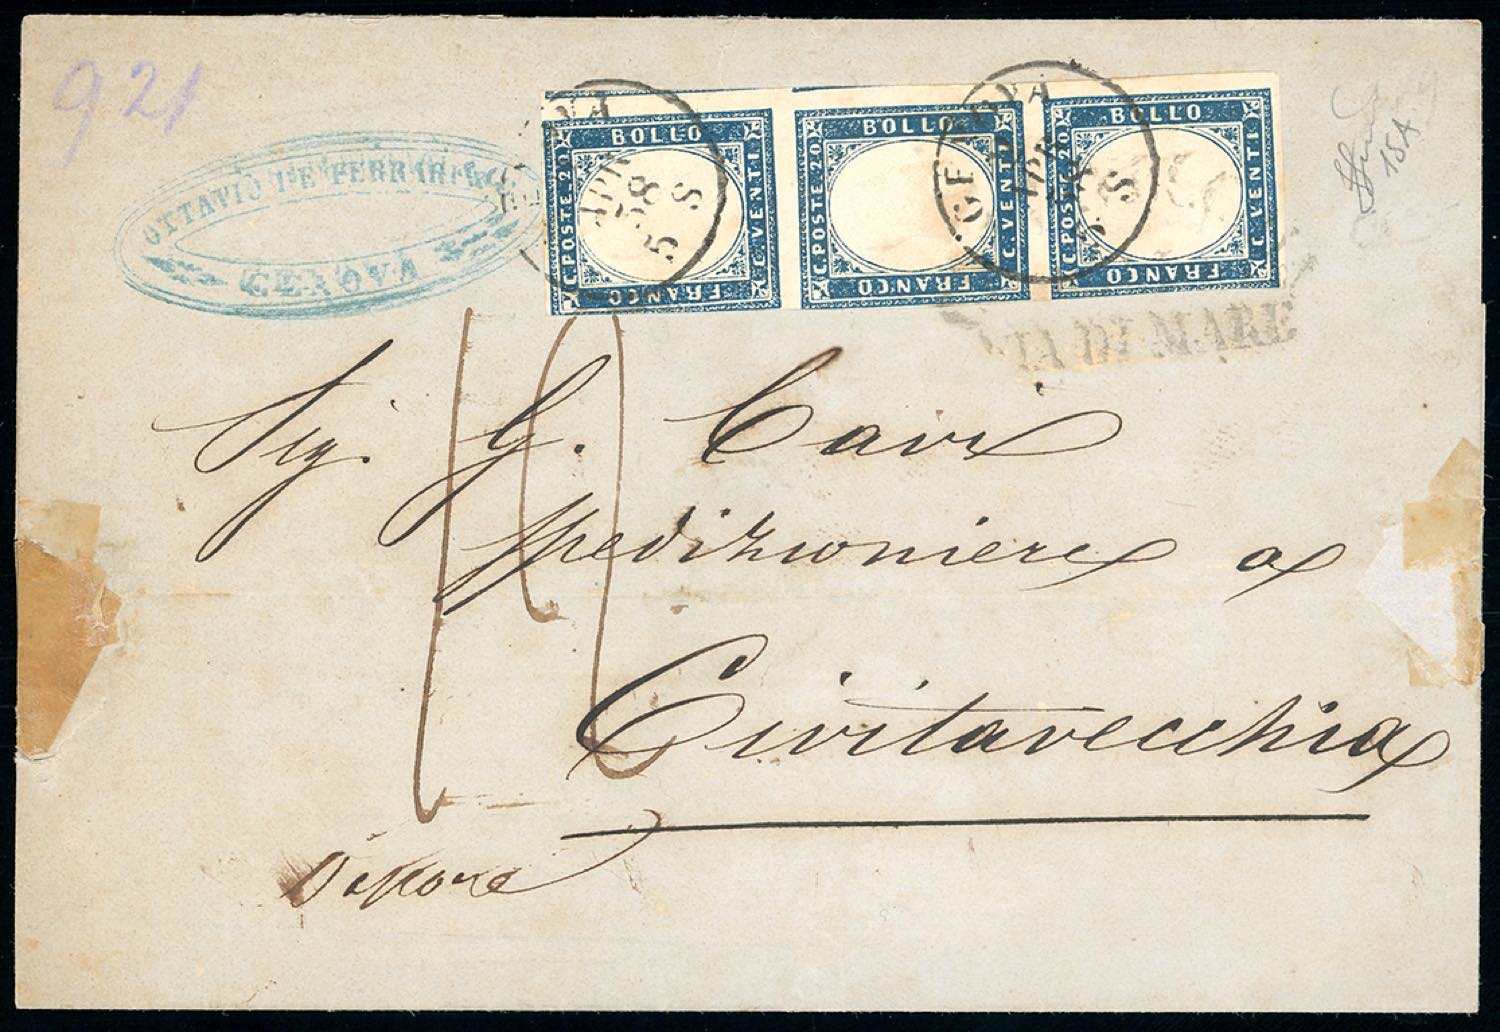 921
OTTAVIO DE FERRARI
GENOVA
BOLLO
C. POSTE 20
C. VENTI
FRANCO
BOLLO
C. POSTE 20
C. VENTI
FRANCO
BOLLO
C. POSTE 20
C. VENTI
FRANCO
GENOVA
APR
58
5 S
GENOVA
APR
58
5 S
VIA DI MARE
15A
Sig. G. Cavi
Spedizioniere a
Civitavecchia
Vapore